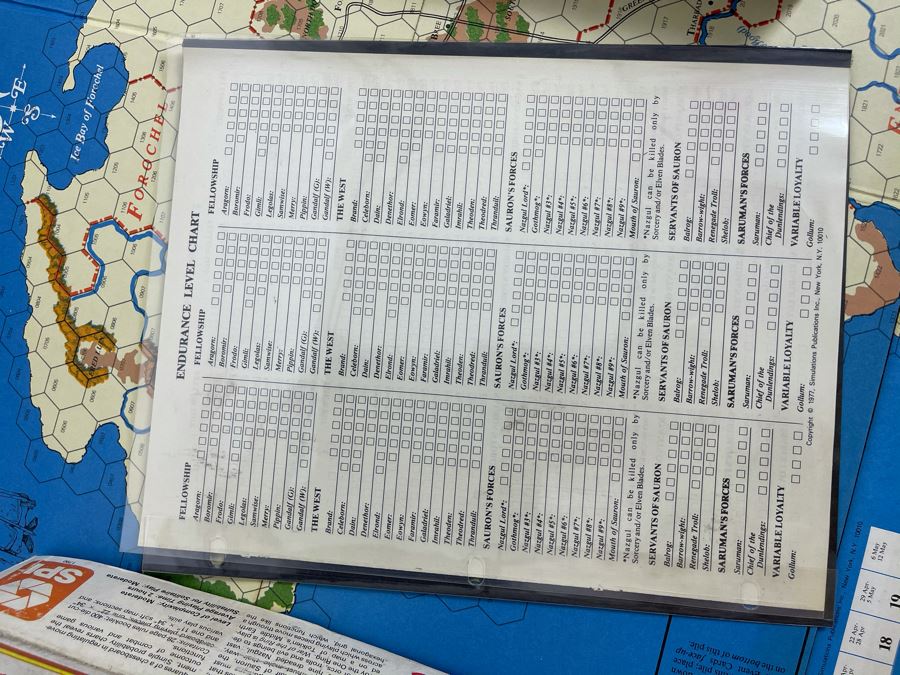 ENDURANCE LEVEL CHART
FELLOWSHIP
Aragorn:
Boromir:
Frodo:
Gimli:
Legolas:
Samwise:
Merry:
Pippin:
Gandalf (G):
Gandalf (W):
THE WEST
Brand:
Celeborn:
Dain:
Denethor:
Elrond:
Eomer:
Eowyn:
Faramir:
Galadriel:
Imrahil:
Theoden:
Theodred:
Thranduil:
SAURON'S FORCES
Nazgul Lord*:
Gothmog*:
Nazgul #3*:
Nazgul #4*:
Nazgul #5*:
Nazgul #6*:
Nazgul #7*:
Nazgul #8*:
Nazgul #9*:
Mouth of Sauron:
*Nazgul can be killed only by
Sorcery and/or Elven Blades.
SERVANTS OF SAURON
Balrog:
Barrow-wight:
Renegade Troll:
Shelob:
SARUMAN'S FORCES
Saruman:
Chief of the
Dunlendings:
VARIABLE LOYALTY
Gollum:
FELLOWSHIP
Aragorn:
Boromir:
Frodo:
Gimli:
Legolas:
Samwise:
Merry:
Pippin:
Gandalf (G):
Gandalf (W):
THE WEST
Brand:
Celeborn:
Dain:
Denethor:
Elrond:
Eomer:
Eowyn:
Faramir:
Galadriel:
Imrahil:
Theoden:
Theodred:
Thranduil:
SAURON'S FORCES
Nazgul Lord*:
Gothmog*:
Nazgul #3*:
Nazgul #4*:
Nazgul #5*:
Nazgul #6*:
Nazgul #7*:
Nazgul #8*:
Nazgul #9*:
Mouth of Sauron:
*Nazgul can be killed only by
Sorcery and/or Elven Blades.
SERVANTS OF SAURON
Balrog:
Barrow-wight:
Renegade Troll:
Shelob:
SARUMAN'S FORCES
Saruman:
Chief of the
Dunlendings:
VARIABLE LOYALTY
Gollum:
FELLOWSHIP
Aragorn:
Boromir:
Frodo:
Gimli:
Legolas:
Samwise:
Merry:
Pippin:
Gandalf (G):
Gandalf (W):
THE WEST
Brand:
Celeborn:
Dain:
Denethor:
Elrond:
Eomer:
Eowyn:
Faramir:
Galadriel:
Imrahil:
Theoden:
Theodred:
Thranduil:
SAURON'S FORCES
Nazgul Lord*:
Gothmog*:
Nazgul #3*:
Nazgul #4*:
Nazgul #5*:
Nazgul #6*:
Nazgul #7*:
Nazgul #8*:
Nazgul #9*:
Mouth of Sauron:
*Nazgul can be killed only by
Sorcery and/or Elven Blades.
SERVANTS OF SAURON
Balrog:
Barrow-wight:
Renegade Troll:
Shelob:
SARUMAN'S FORCES
Saruman:
Chief of the
Dunlendings:
VARIABLE LOYALTY
Gollum:
Copyright © 1977, Simulations Publications Inc., New York, N.Y. 10010
Ice Bay of Forochel
FOROCHEL
BREE
W
S
E
SPI
Level of Complexity: Moderate
Average Playing Time: 2 hours
Suitability for Solitaire Play: Moderate
22 Apr-
28 Apr
18
29 Apr-
5 May
19
6 May
12 May